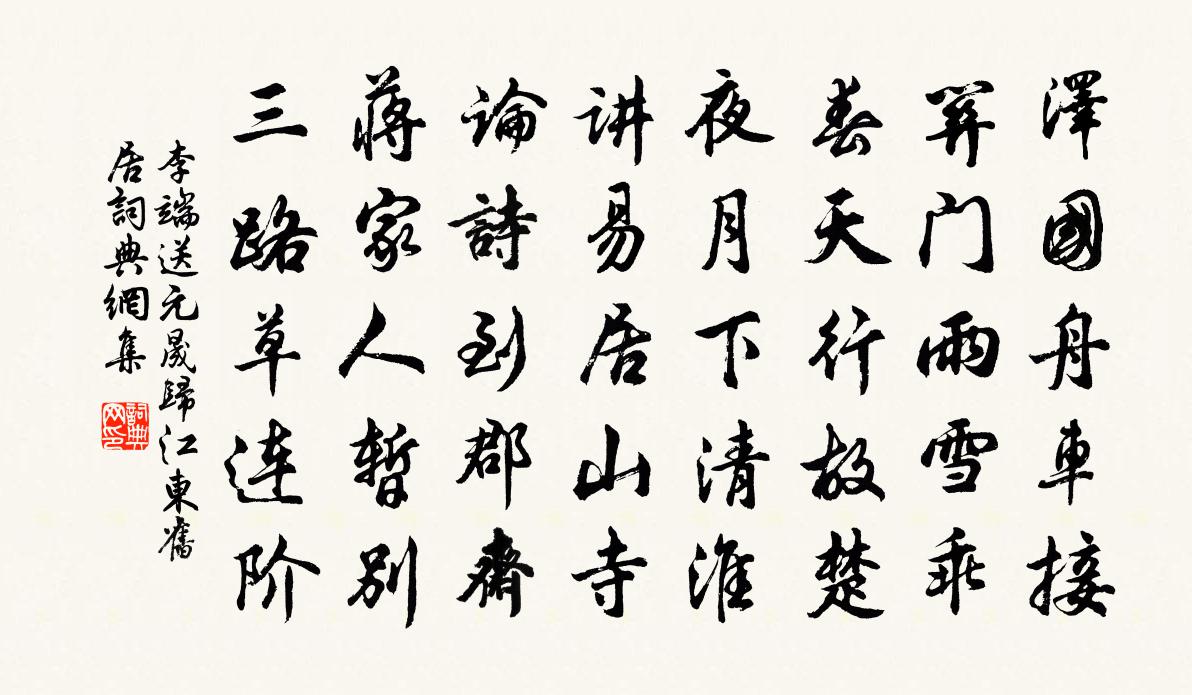 澤國舟車接
關门雨雪乖
春天行故楚
夜月下清淮
讲易居山寺
論詩到郡齋
蔣家人暫別
三路草连阶
李端送元晟歸江東舊
居詞典網集
詞典
网印